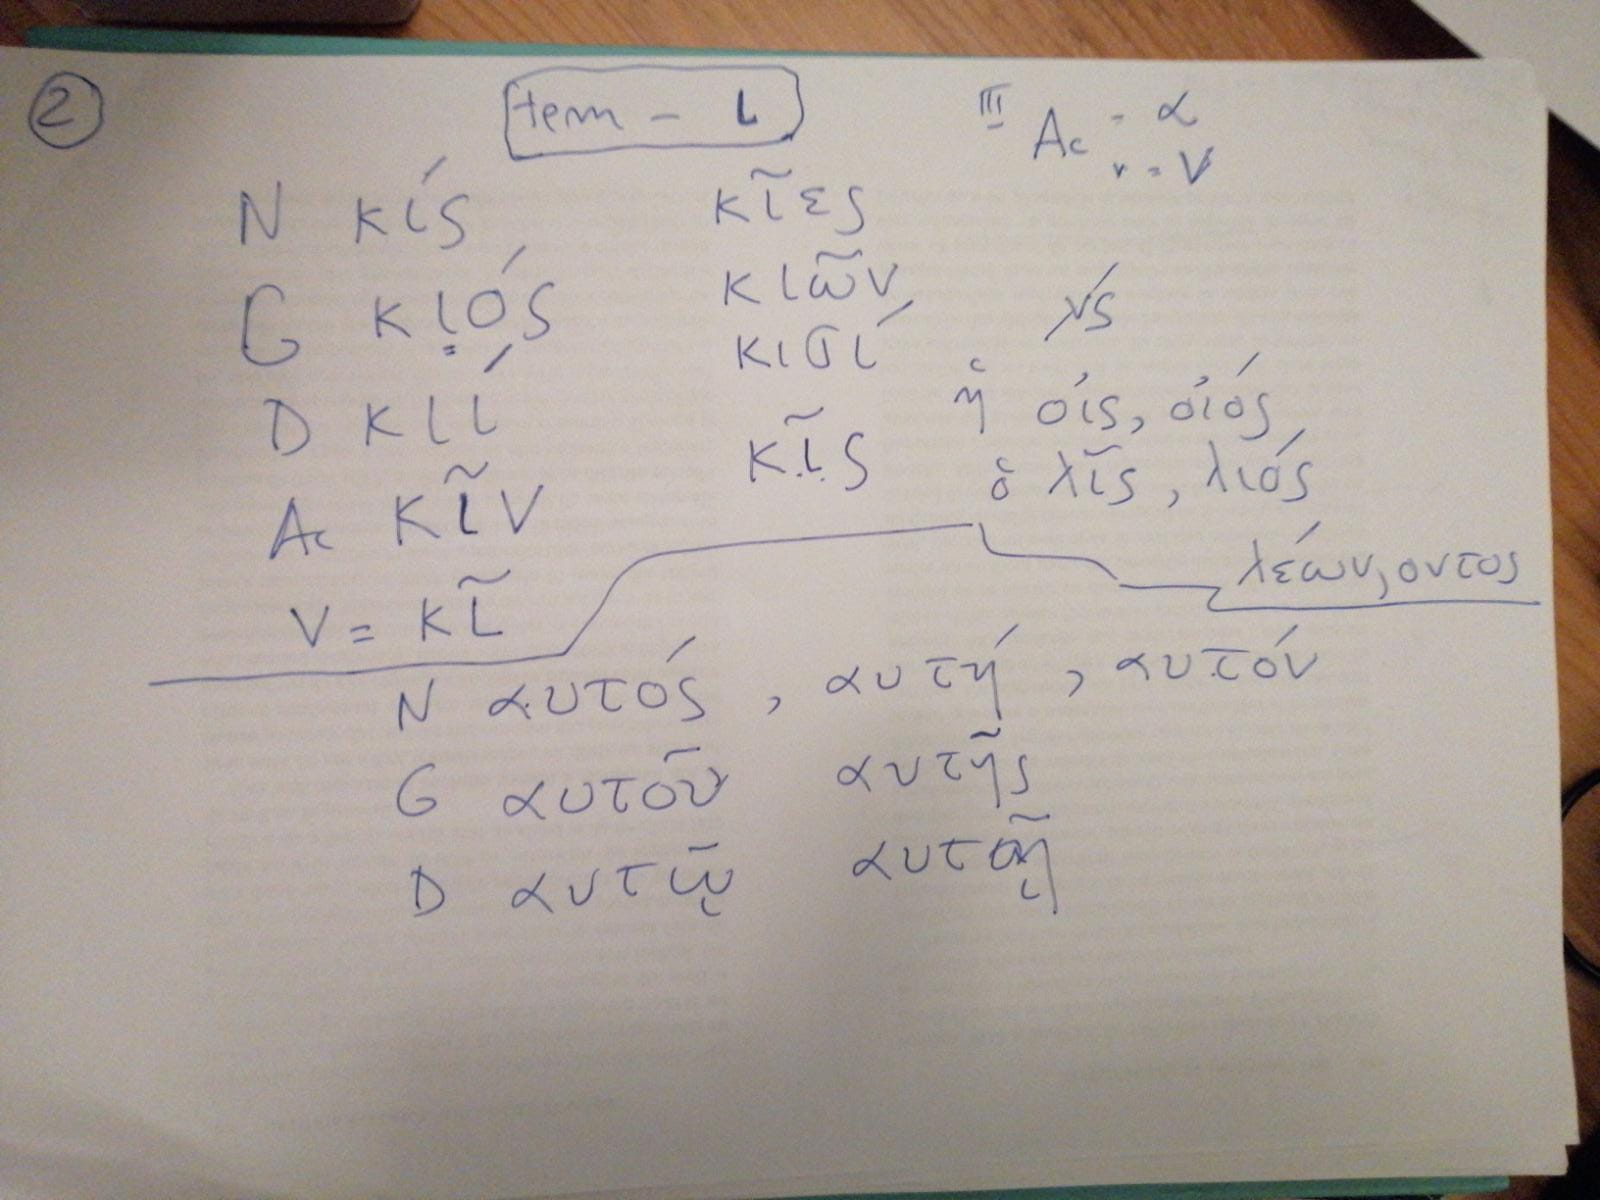 2
tem - ι
III Ac - α
ν = ν
N κίς κῖες
G κιός κιῶν
D κιί κισί
Ac κῖν κῖς
V = κῖ
ἡ οἶς, οἰός
ὁ λῖς, λιός
λέων, οντος
N αυτός, αυτή, αυτόν
G αυτοῦ αυτῆς
D αυτῷ αυτῇ